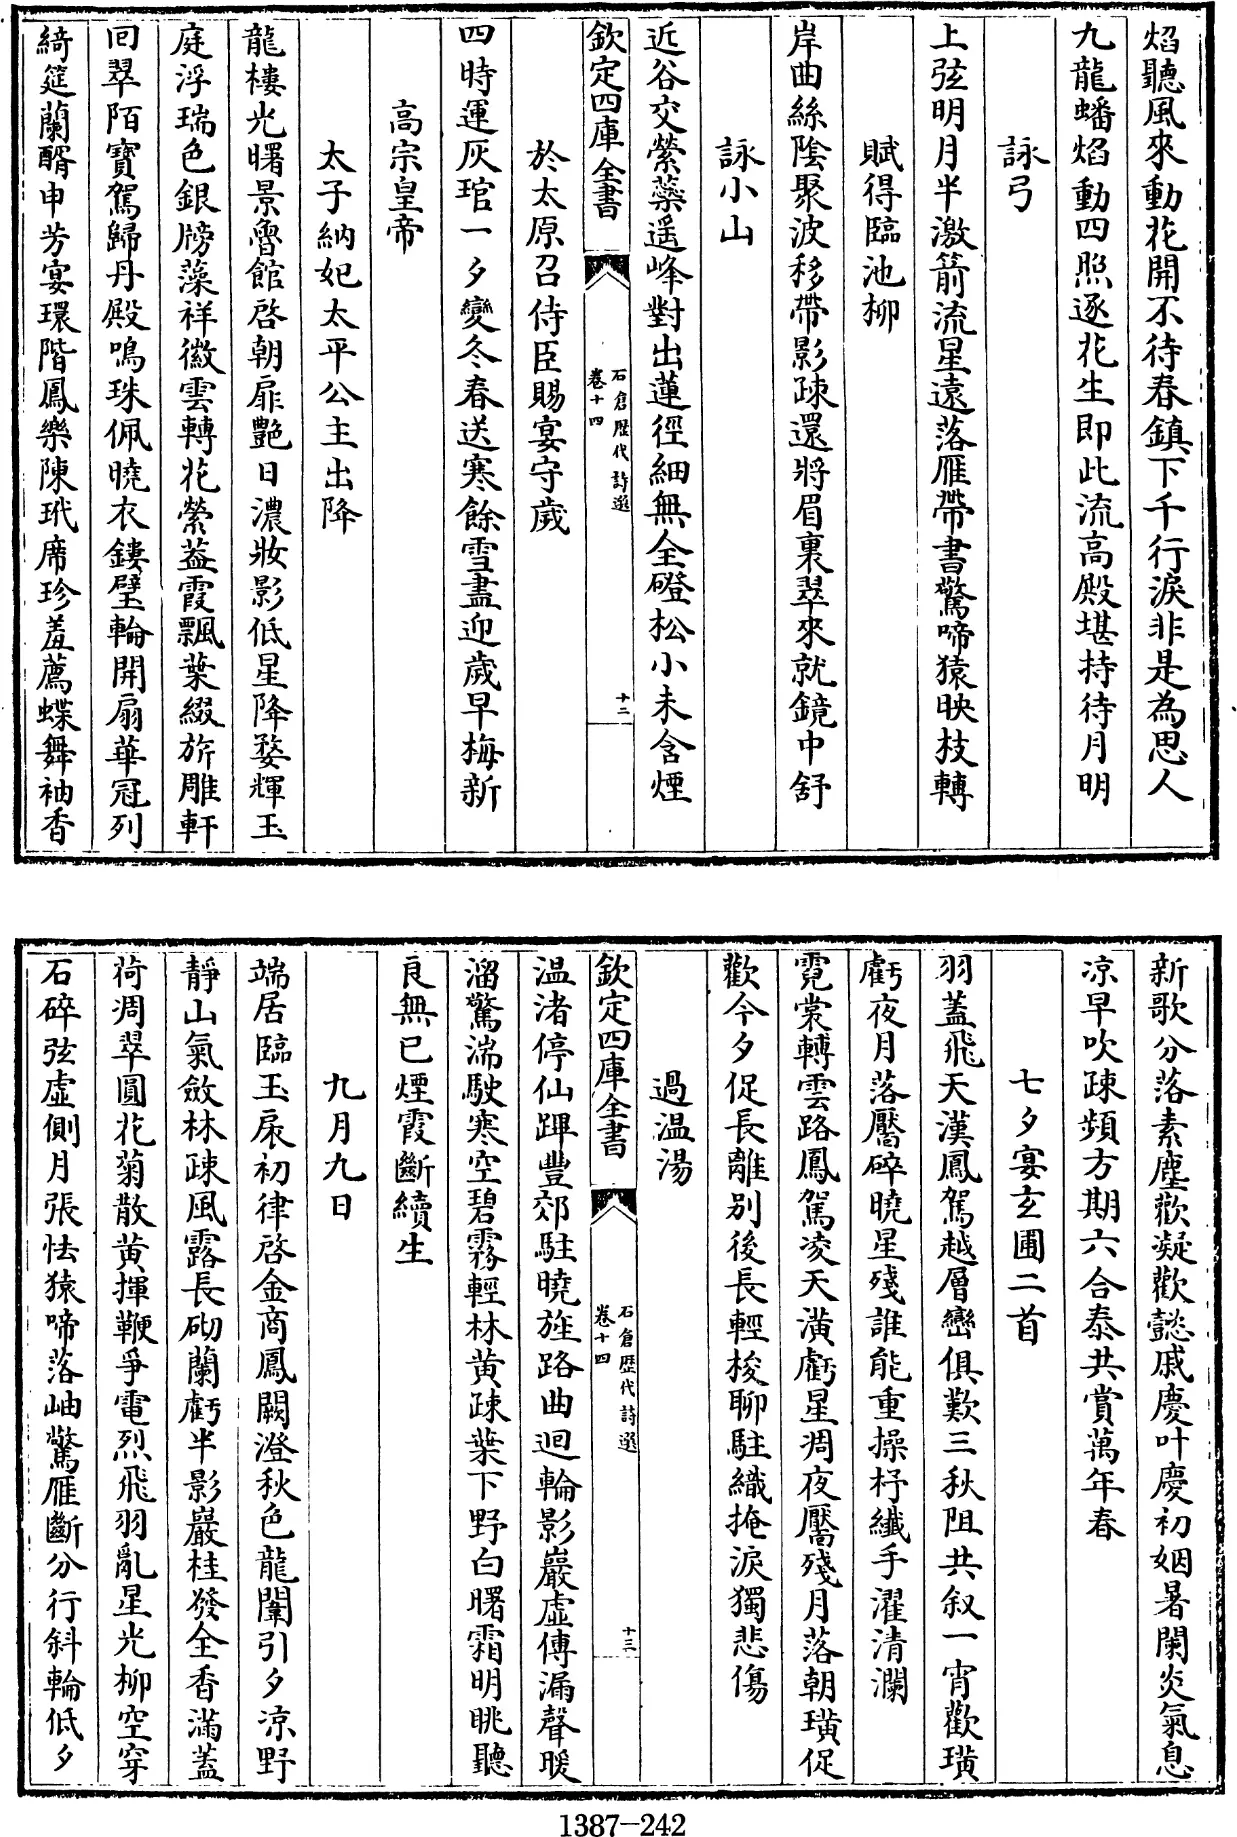 焰聽風來動花開不待春鎮下千行淚非是為思人
九龍蟠焰動四照逐花生即此流高殿堪持待月明
詠弓
上弦明月半激箭流星遠落雁帶書驚啼猿映枝轉
賦得臨池柳
岸曲絲陰聚波移帶影疎還將眉裏翠來就鏡中舒
詠小山
近谷交縈蘂遥峰對出蓮徑細無全磴松小未含煙
欽定四庫全書
石倉歴代詩選
卷十四
十二
於太原召侍臣賜宴守歲
四時運灰琯一夕變冬春送寒餘雪盡迎歲早梅新
高宗皇帝
太子納妃太平公主出降
龍樓光曙景魯館啓朝扉艷日濃妝影低星降婺輝玉
庭浮瑞色銀牓藻祥徽雲轉花縈葢霞飄葉綴旂雕軒
回翠陌寶駕歸丹殿鳴珠佩曉衣鏤璧輪開扇華冠列
綺筵蘭醑申芳宴環階鳳樂陳玳席珍羞薦蝶舞袖香
新歌分落素塵歡凝歡懿戚慶叶慶初姻暑闌炎氣息
凉早吹疎頻方期六合泰共賞萬年春
七夕宴玄圃二首
羽蓋飛天漢鳳駕越層巒俱歎三秋阻共叙一宵歡璜
虧夜月落靨碎曉星殘誰能重操杼纖手濯清瀾
霓裳轉雲路鳳駕凌天潢虧星凋夜靨殘月落朝璜促
歡今夕促長離別後長輕梭聊駐織掩淚獨悲傷
過温湯
欽定四庫全書
石倉歴代詩選
卷十四
十三
温渚停仙蹕豐郊駐曉旌路曲迴輪影巖虛傳漏聲暖
溜驚湍駛寒空碧霧輕林黄疎葉下野白曙霜明眺聽
良無已煙霞斷續生
九月九日
端居臨玉扆初律啓金商鳳闕澄秋色龍闈引夕凉野
靜山氣斂林疎風露長砌蘭虧半影巖桂發全香滿蓋
荷凋翠圓花菊散黄揮鞭爭電烈飛羽亂星光柳空穿
石碎弦虛側月張怯猿啼落岫驚雁斷分行斜輪低夕
1387—242